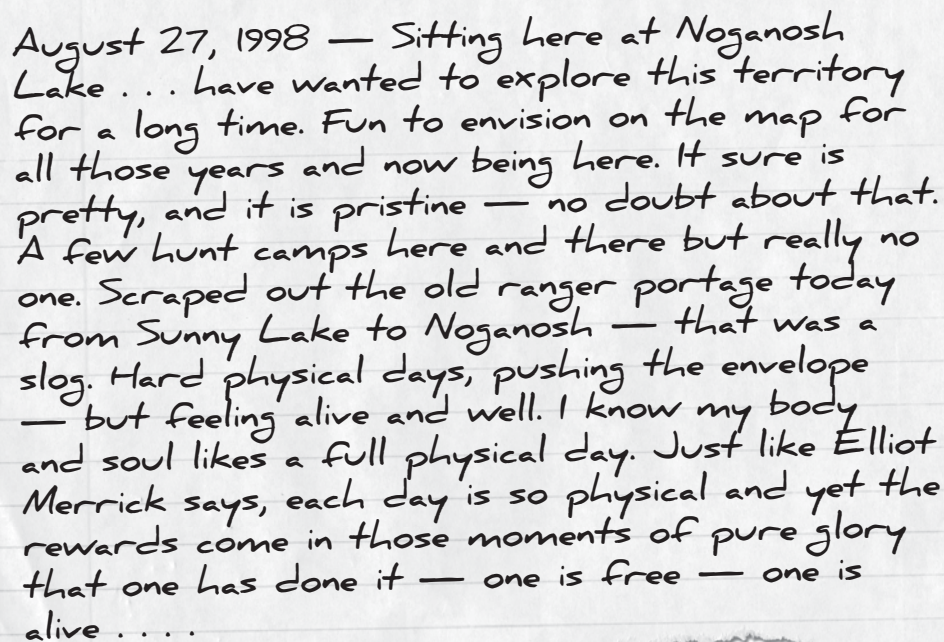 August 27, 1998 — Sitting here at Noganosh
Lake . . . have wanted to explore this territory
for a long time. Fun to envision on the map for
all those years and now being here. It sure is
pretty, and it is pristine — no doubt about that.
A few hunt camps here and there but really no
one. Scraped out the old ranger portage today
from Sunny Lake to Noganosh — that was a
slog. Hard physical days, pushing the envelope
— but feeling alive and well. I know my body
and soul likes a full physical day. Just like Elliot
Merrick says, each day is so physical and yet the
rewards come in those moments of pure glory
that one has done it — one is free — one is
alive . . . .